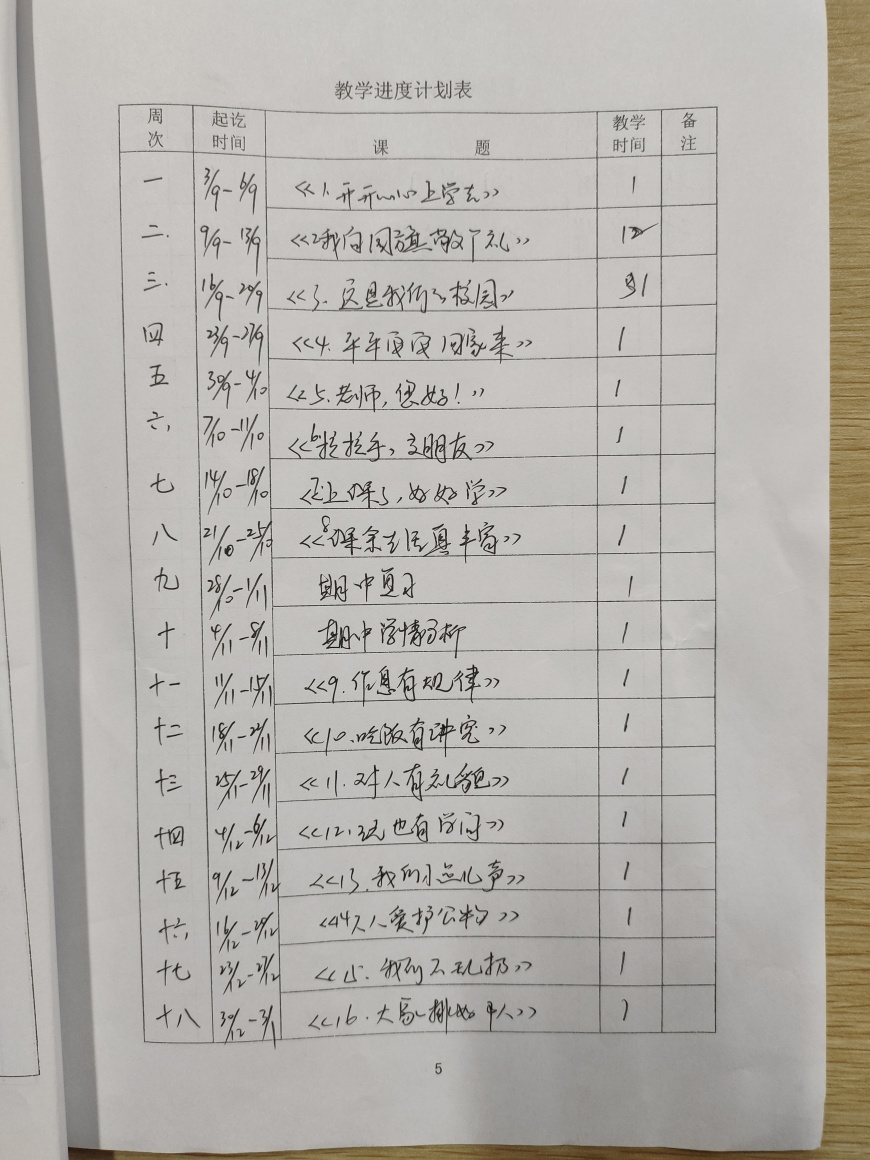 教学进度计划表
周次 起讫时间 课 题 教学时间 备注
一 3/9-6/9 《1.开开心心上学去》 1
二. 9/9-13/9 《2我向国旗敬个礼》 1
三. 16/9-20/9 《3.这是我们的校园》 1
四 23/9-27/9 《4.平平安安回家来》 1
五 30/9-4/10 《5.老师,您好!》 1
六, 7/10-11/10 《6拉拉手,交朋友》 1
七 14/10-18/10 《7上课了,好好学》 1
八 21/10-25/10 《8课余生活真丰富》 1
九 28/10-1/11 期中复习 1
十 4/11-8/11 期中学情分析 1
十一 11/11-15/11 《9.作息有规律》 1
十二 18/11-22/11 《10.吃饭有讲究》 1
十三 25/11-29/11 《11.对人有礼貌》 1
十四 4/12-6/12 《12.玩也有学问》 1
十五 9/12-13/12 《13.我们小点儿声》 1
十六, 16/12-20/12 《14人人爱护公物》 1
十七 23/12-27/12 《15.我们不乱扔》 1
十八 30/12-3/1 《16.大家排好队》 1
5